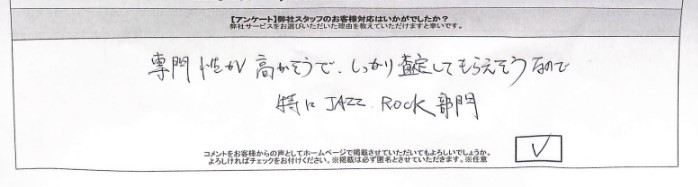 【アンケート】弊社スタッフのお客様対応はいかがでしたか？
弊社サービスをお選びいただいた理由を教えていただけますと幸いです。
専門性が高かそうで、しっかり査定してもらえそうなので
特に JAZZ. ROCK 部門
コメントをお客様からの声としてホームページで掲載させていただいてもよろしいでしょうか。
よろしければチェックをお付けください。※掲載は必ず匿名とさせていただきます。※任意